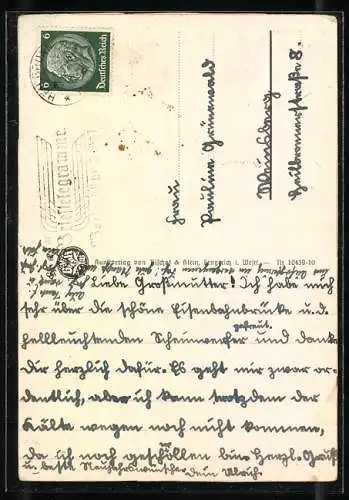 6 Deutsches Reich 6
Brieftelegramme
Frau
Pauline Grünewald
Weinsberg
Heilbronnerstraße 8.
Kunstverlag von Bischof & Klein, Lengerich i. Westf. — Nr. 10439-10
Liebe Großmutter! Ich habe mich
sehr über die schöne Eisenbahnbrücke u. d.
gefreut.
hellleuchtenden Scheinwerfer und danke
Dir herzlich dafür. Es geht mir zwar or-
dentlich, aber ich kann trotzdem der
Kälte wegen noch nicht kommen,
da ich noch geschollen bin. Herzl. Grüße
u. beste Neujahrswünsche Dein Ulrich.